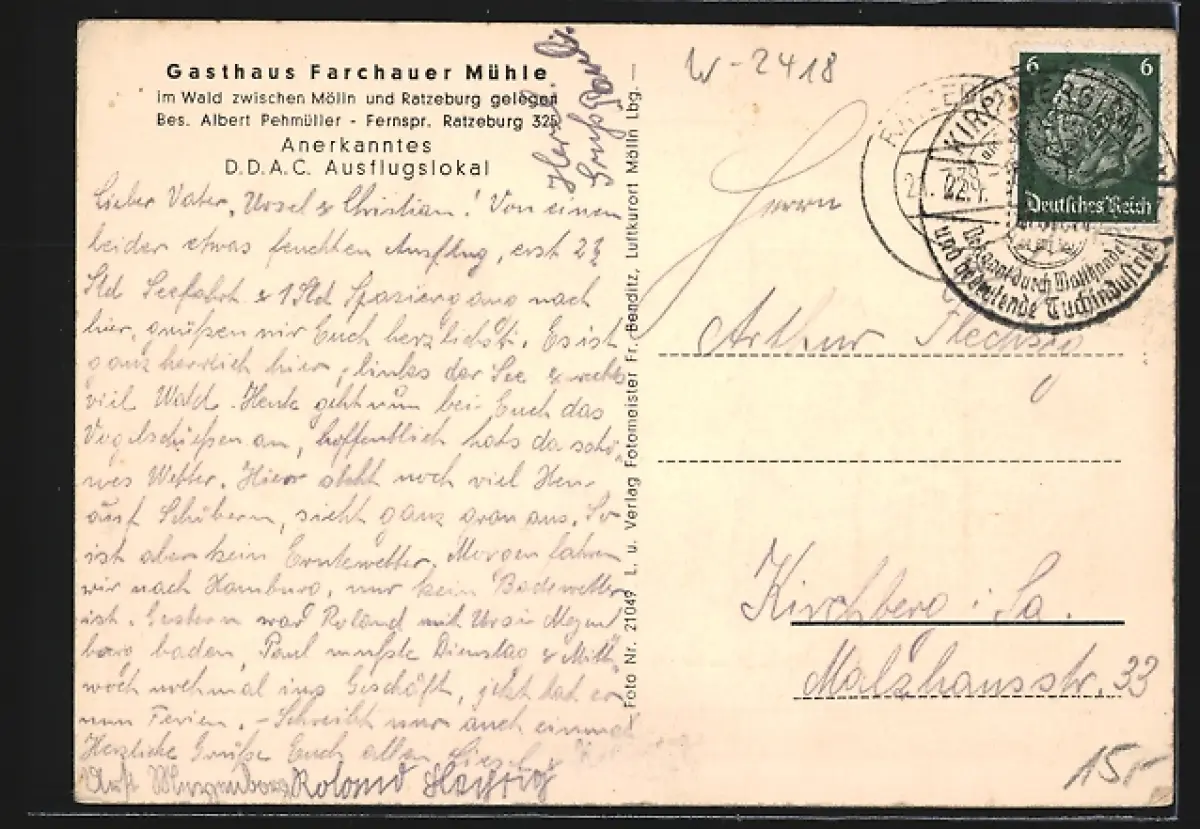 Gasthaus Farchauer Mühle
im Wald zwischen Mölln und Ratzeburg gelegen
Bes. Albert Pehmüller - Fernspr. Ratzeburg 325
Anerkanntes
D.D.A.C. Ausflugslokal
Herzl.
Gruß Paul
Lieber Vater, Ursel & Christian! Von einem
leider etwas feuchten Ausflug, erst 2½
Std Seefahrt & 1 Std Spaziergang nach
hier, grüßen wir Euch herzlichst. Es ist
ganz herrlich hier, links der See & rechts
viel Wald. Heute geht nun bei Euch das
Vogelschießen an, hoffentlich hats da schö-
nes Wetter. Hier steht noch viel Heu
auf Schobern, sieht ganz grau aus. So
ist aber kein Erntewetter. Morgen fahren
wir nach Hamburg, nur kein Badewetter
ist. Gestern war Roland mit Ursu
baden, Paul mußte Dienstag & Mitt-
woch nochmal ins Geschäft, jetzt hat er
nun Ferien. - Schreibt nur auch einmal
Herzliche Grüße Euch allen Liesel &
Roland
Foto Nr. 21049 L. u. Verlag Fotomeister Fr. Benditz, Luftkurort Mölln Lbg.
W-2418
6 6
Deutsches Reich
KIRCHBERG (SACHS)
22.
Bekannt durch Wallhandel
und bedeutende Tuchindustrie
Herrn
Arthur Flechsig
Kirchberg i. Sa.
Malzhausstr. 33
15,-